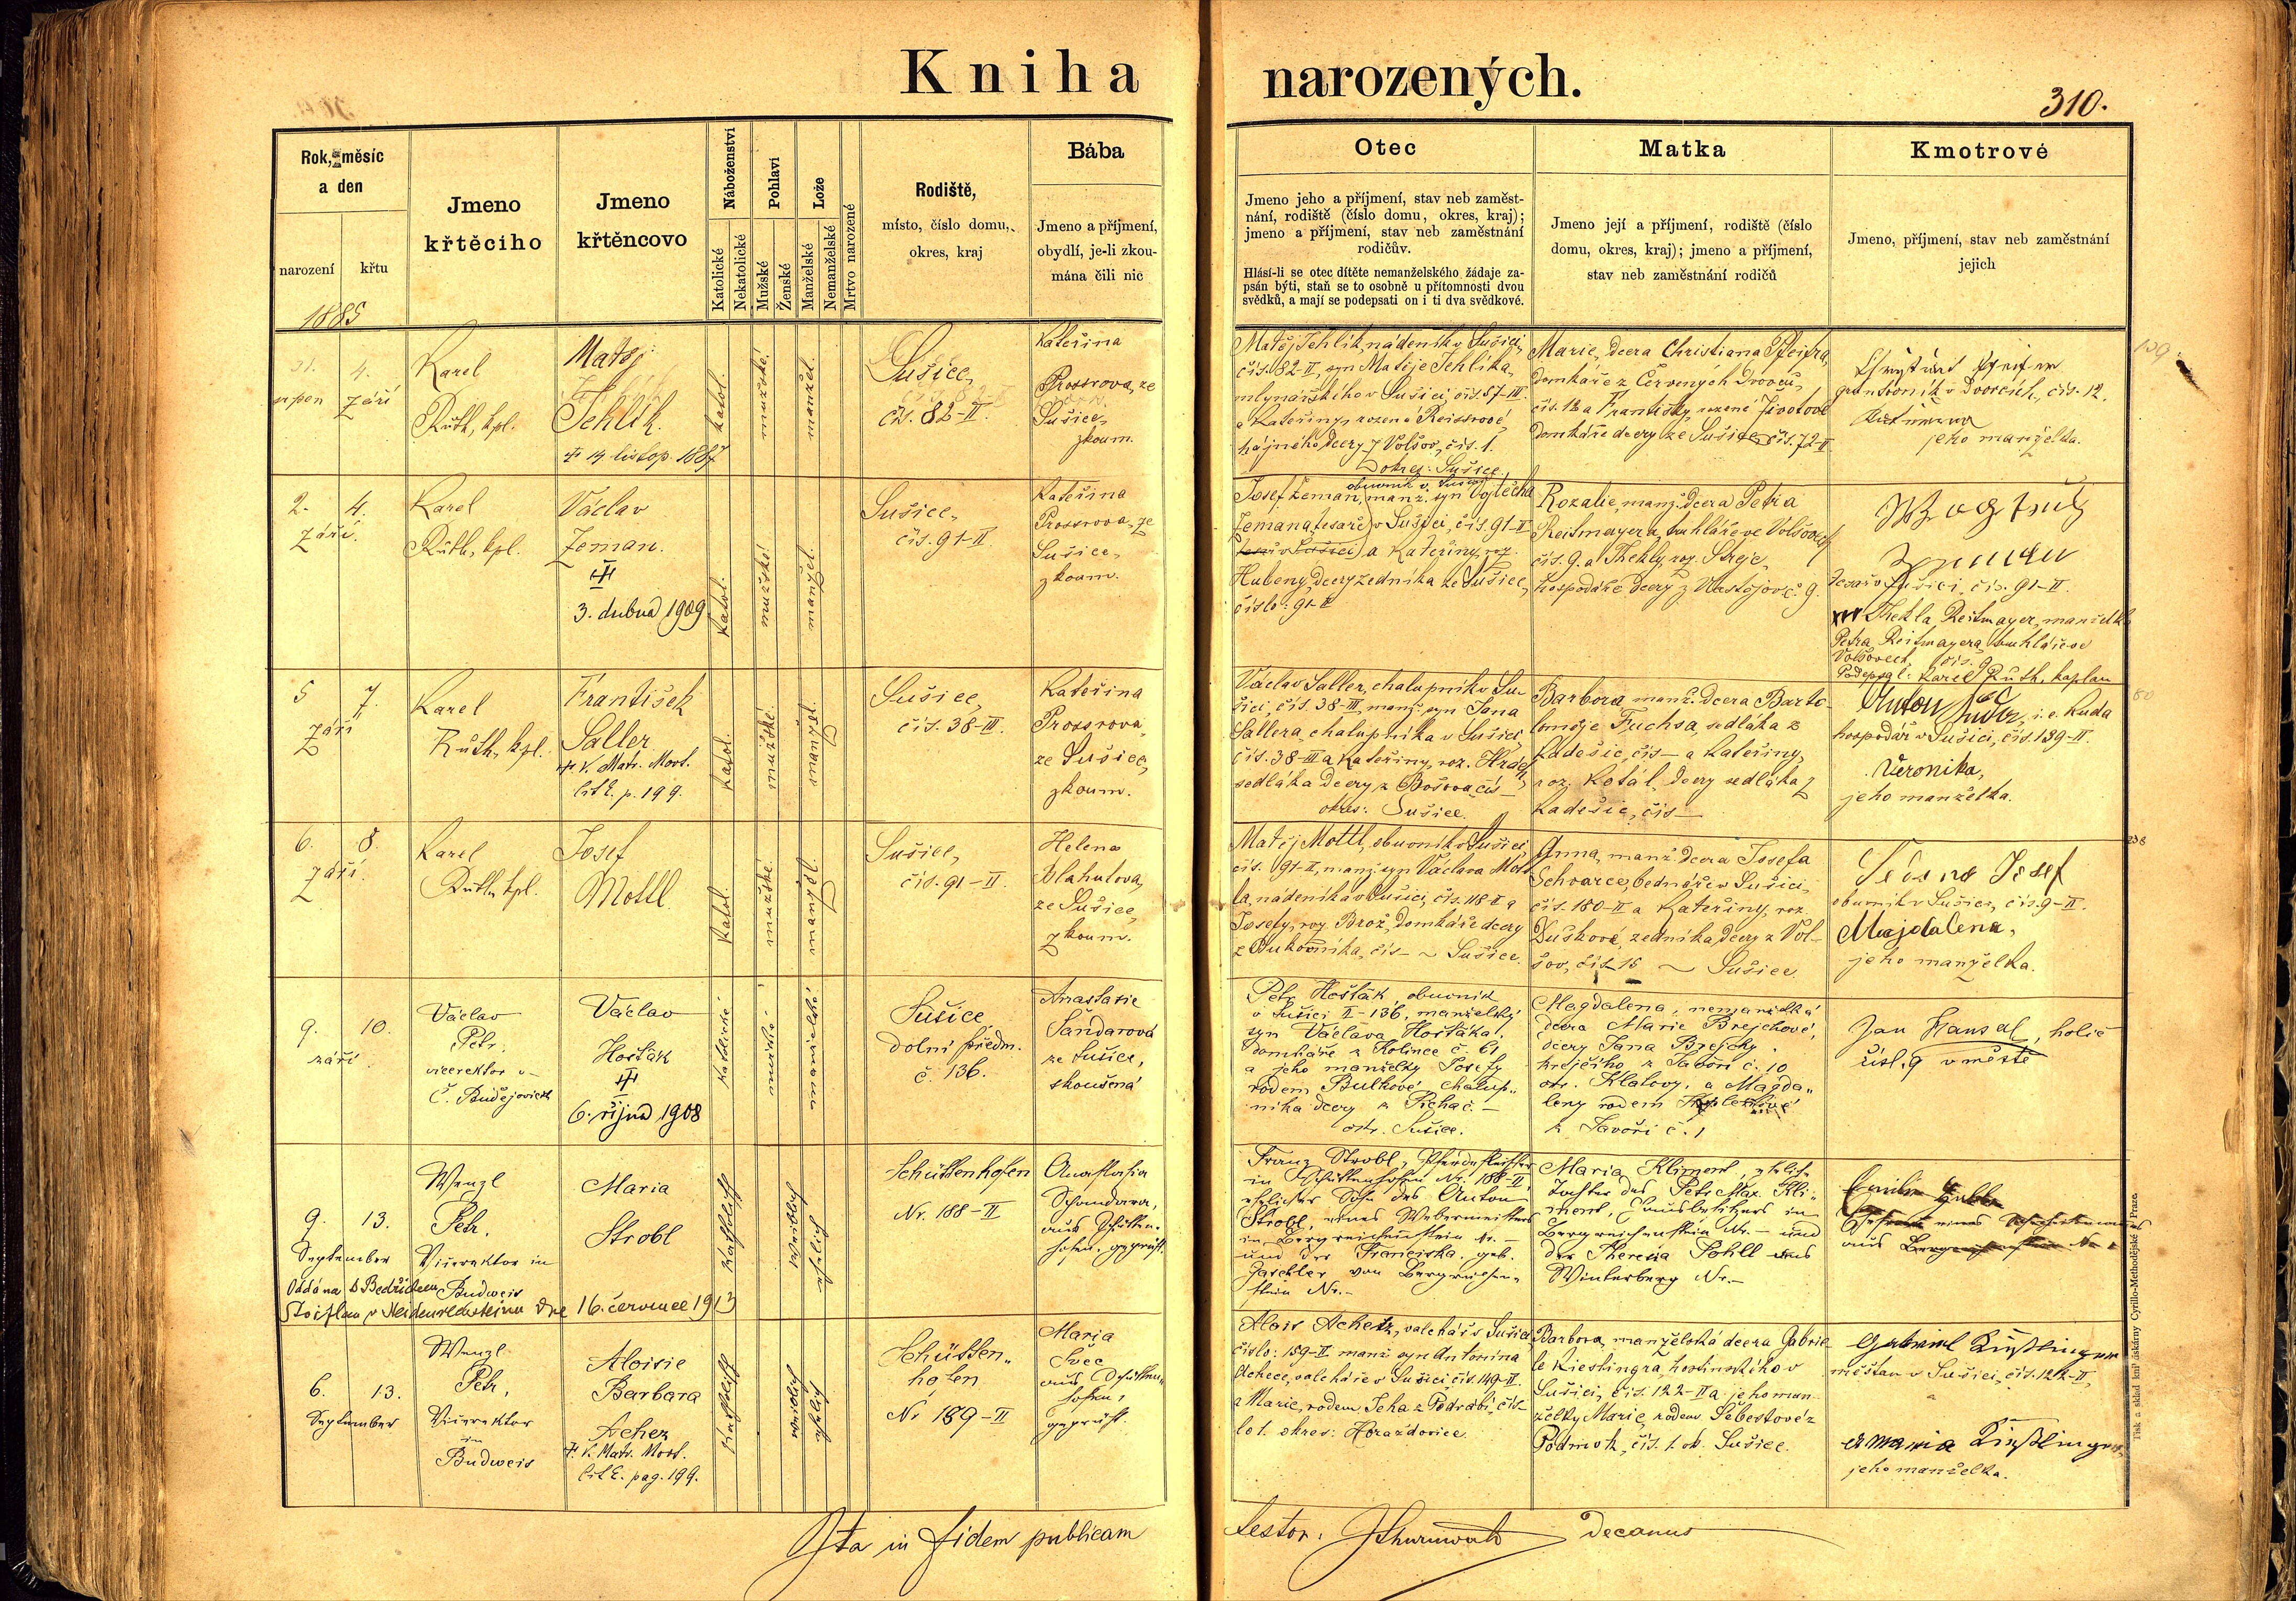 Kniha narozených.
310.
Rok, měsíc
a den
narození
křtu
1885
Jmeno
křtěciho
Jmeno
křtěncovo
Náboženství
Katolické
Nekatolické
Pohlaví
Mužské
Ženské
Lože
Manželské
Nemanželské
Mrtvo narozené
Rodiště,
místo, číslo domu,
okres, kraj
Bába
Jmeno a příjmení,
obydlí, je-li zkou-
mána čili nic
Otec
Jmeno jeho a příjmení, stav neb zaměst-
nání, rodiště (číslo domu, okres, kraj);
jmeno a příjmení, stav neb zaměstnání
rodičův.
Hlásí-li se otec dítěte nemanželského žádaje za-
psán býti, staň se to osobně u přítomnosti dvou
svědků, a mají se podepsati on i ti dva svědkové.
Matka
Jmeno její a příjmení, rodiště (číslo
domu, okres, kraj); jmeno a příjmení,
stav neb zaměstnání rodičů
Kmotrové
Jmeno, příjmení, stav neb zaměstnání
jejich
31. 4.
srpen září
Karel
Růth, kpl.
Matěj
Jehlík.
14 listop. 1887
katol.
mužské
manžel.
Sušice,
čís. 82-II.
Kateřina
Prossrova, ze
Sušice,
zkoum.
Matěj Jehlík, nádeník v Sušici,
čís. 82 II, syn Matěje Jehlíka,
mlynářského v Sušici, čís. 57-III
a Kateřiny, rozené Reissrové,
hájného dcery z Volšov, čís. 1.
okres: Sušice.
Marie, dcera Christiana Pfeifra,
domkáře z Červených Dvorců,
čís. 12 a Františky, rozené Životové
domkáře dcery ze Sušice čís. 72-II
Pfeifer
v Dvorcích, čís. 12.
jeho manželka.
139
2. 4.
září.
Karel
Růth, kpl.
Václav
Zeman.
3. dubna 1909
katol.
mužské
manžel.
Sušice,
čís. 91-II.
Kateřina
Prossrova, ze
Sušice,
zkoum.
obuvník v Sušici
Josef Zeman, manž. syn Vojtěcha
Zemana, tesaře v Sušici, čís. 91-II
a Kateřiny, roz.
Hubeny, dcery zedníka ze Sušice,
číslo: 91-II
Rozalie, manž. dcera Petra
Reitmayera, truhláře ve Volšovech
čís. 9. a Thekly, roz. Streje,
hospodáře dcery z Vlastějov č. 9.
tesař v Sušici, čís. 91-II.
Thekla Reitmayer, manželka
Petra Reitmayera, truhláře ve
Volšovech, čís. 9
Podepsal: Karel Růth, kaplan
5 7.
září
Karel
Růth, kpl.
František
Saller
V. Matr. Mort.
lit E. p. 199.
katol.
mužské.
manžel.
Sušice,
čís. 38-III.
Kateřina
Prossrova,
ze Sušice,
zkoum.
Václav Saller, chalupník v Su-
šici, čís. 38-III, manž. syn Jana
Sallera, chalupníka v Sušici,
čís. 38-III a Kateřiny, roz.
sedláka dcery z
okres: Sušice.
Barbora, manž. dcera Barto-
loměje Fuchsa, sedláka z
Kadešic, čís — a Kateřiny,
roz. Kotál, dcery sedláka z
Kadešic, čís —
Anton Kuda, i.e. Kuda
hospodář v Sušici, čís. 139-II.
Veronika,
jeho manželka.
80
6. 8.
září
Karel
Růth, kpl.
Josef
Mottl.
katol.
mužské.
manžel.
Sušice,
čís. 91-II.
Helena
Blahutova,
ze Sušice,
zkoum.
Matěj Mottl, obuvník v Sušici,
čís. 91-II, manž. syn Václava Mott-
la, nádeníka v Sušici, čís. 118 II a
Josefy, roz. Brož, domkáře dcery
z Bukovníka, čís — ~ Sušice.
Anna, manž. dcera Josefa
Schvarce, bednáře v Sušici,
čís. 180-II a Kateřiny, roz.
Duškové, zedníka dcery z Vol-
šov, čís. 15 ~ Sušice
Josef
obuvník v Sušici, čís. 9-II.
Majdalena,
jeho manželka.
238
9. 10.
září
Václav
Petr
vicerektor v
Č. Budějovicích
Václav
Hošťák
6. října 1908
katolické
mužské
manželské
Sušice
dolní předm.
č. 136.
Anastasie
Šandarová
ze Sušice,
zkoušená
Petr Hošťák, obuvník
v Sušici II-136, manželský
syn Václava Hošťáka,
domkáře z Kolince č. 61
a jeho manželky Josefy
rodem Bulkové, chalup-
níka dcery z Picha č. —
okr. Sušice.
Magdalena, nemanželská
dcera Marie Brejchové,
dcery Jana Brejchy
krejčího z Javoří č. 10
okr. Klatovy, a Magda-
leny rodem
z Javoří č. 1
Jan Hansal, holič
čísl. 9 v městě
9. 13.
September
Wenzl
Petr,
Vicerektor in
Budweis
Maria
Strobl
Katholisch
weiblich
ehelich
Schüttenhofen
Nr. 188-II
Anastasia
Schandara,
aus Schütten-
hofen, geprüft.
Oddána s Bedřichem
16. července 1913
Franz Strobl, Pferdefleischer
in Schüttenhofen Nr. 188-II,
ehelicher Sohn des Anton
Strobl, eines Webermeisters
in Bergreichenstein Nr. —
und der Franciska, geb.
Gaschler von Bergreichen-
stein Nr. —
Maria Kliment, eheliche
Tochter des Petr Max. Kli-
ment, Hausbesitzers in
Bergreichenstein Nr. — und
der Theresia Pohll aus
Winterberg Nr. —
6. 13.
September
Wenzl
Petr,
Vicerektor
in
Budweis
Aloisie
Barbara
Achez
V. Matr. Mort.
lit E. pag. 199.
Katholisch
weiblich
ehelich
Schütten-
hofen
Nr 189-II
Maria
Švec
aus Schütten-
hofen,
geprüft.
Alois Achetz, valchář v Sušici,
číslo: 159-II manž. syn Antonína
Achece, valcháře v Sušici, čís. 149-II.
a Marie, rodem Jeha z Podrábí, čís-
lo 1. okres: Horažďovice.
Barbora, manželská dcera Gabrie-
le Kieslingra, hostinského v
Sušici, čís. 122-II a jeho man-
želky Marie, rodem Šebestové z
Podmok, čís. 1. ok. Sušice.
Gabriel Kießlinger
měšťan v Sušici, čís. 122-II,
a Maria Kießlinger,
jeho manželka.
Ita in fidem publicam
testor: decanus
Tisk a sklad knihtiskárny Cyrillo-Methodějské v Praze.